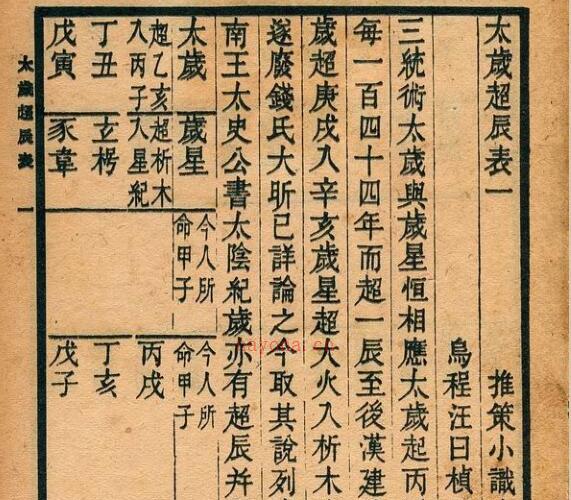 太歲超辰表一 推策小識
烏程汪曰楨
三統術太歲與歲星恒相應太歲起丙
每一百四十四年而超一辰至後漢建
歲超庚戌入辛亥歲星超大火入析木
遂廢錢氏大昕已詳論之今取其說列
南王太史公書太陰紀歲亦有超辰幷
太歲 歲星 今人所命甲子 今人所命甲子
超乙亥入丙子 超析木入星紀 丙戌
丁丑 玄枵 丁亥
戊寅 豕韋 戊子
太歲超辰表 一